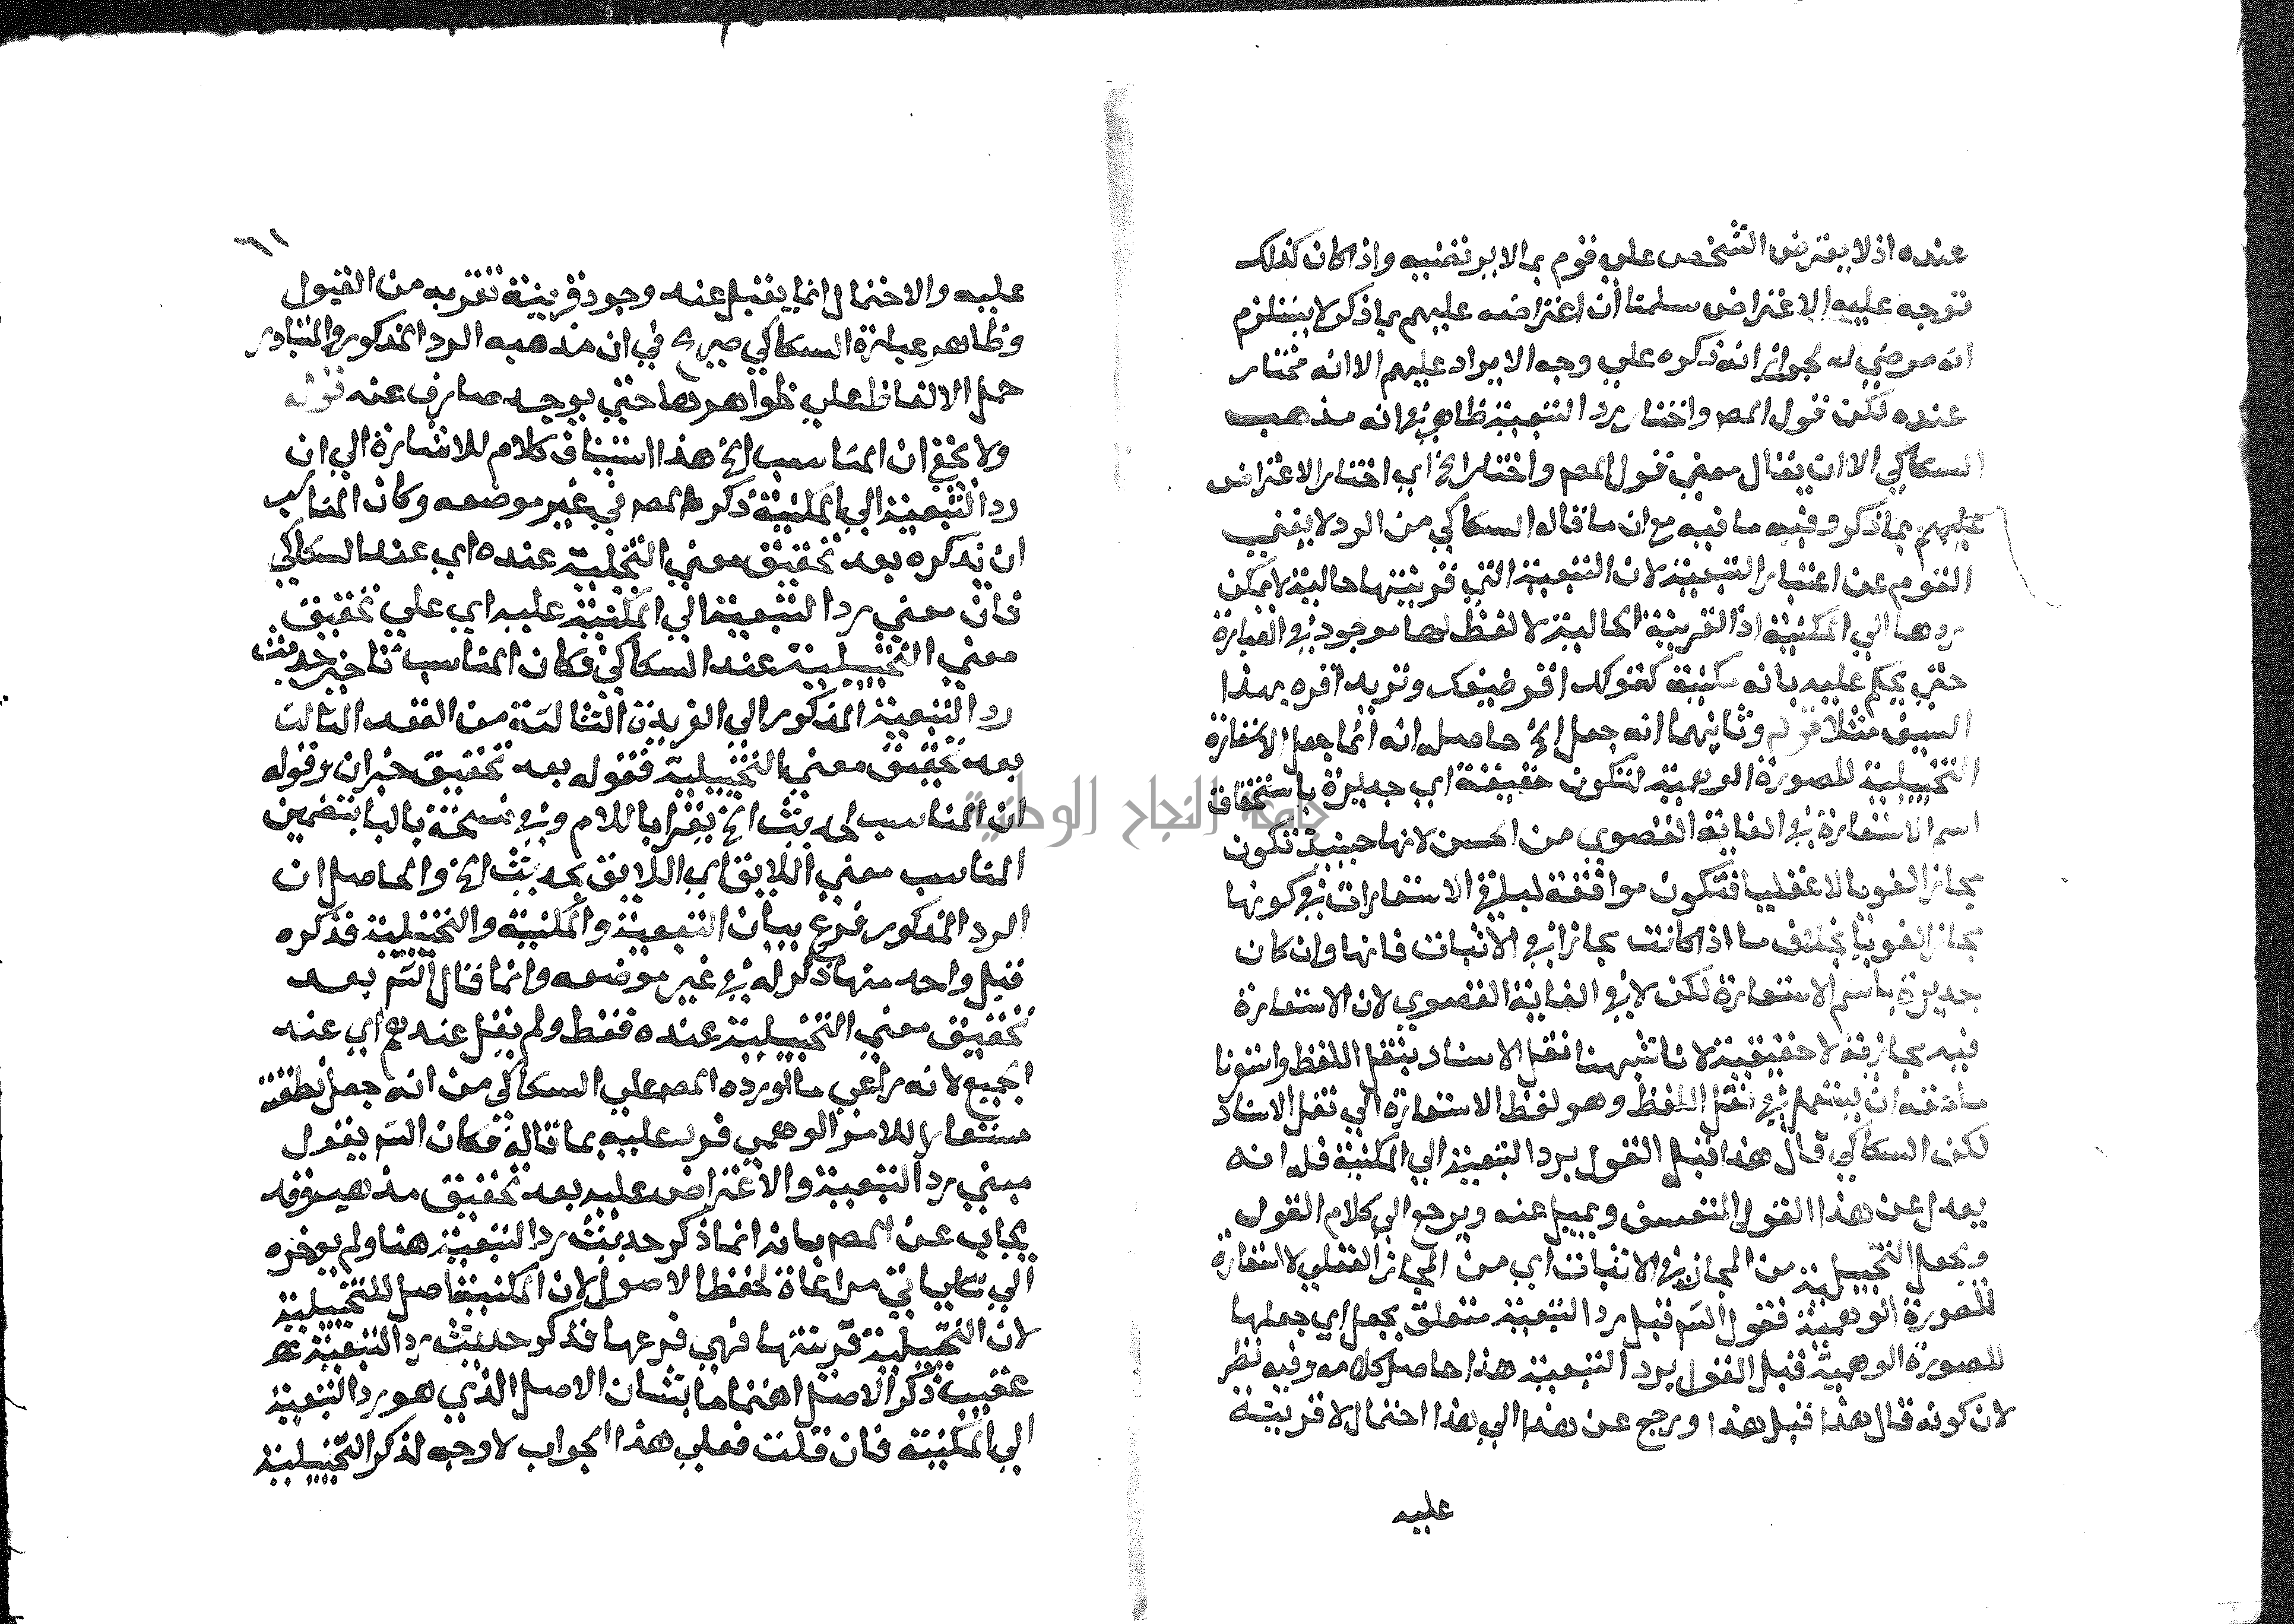 عنده اذ لا يعترض الشخص علي قوم بما لا يرتضيه واذا كان كذلك
توجه عليه الاعتراض سلمنا أن اعتراضه عليهم بما ذكر لا يستلزم
انه مرضي له لجواز انه ذكره علي وجه الايراد عليهم الا انه مختار
عنده لكن قول المصـ واختار رد التبعية ظاهر في انه مذهب
السكاكي الا ان يقال معني قول المصـ واختار الخ اي اختار الاعتراض
عليهم بما ذكر وفيه ما فيه مع ان ما قاله السكاكي من الرد لا يغني
القوم عن اعتبار التبعية لان التبعية التي قرينتها حالية لا يمكن
ردها الي المكنية اذ القرينة الحالية لا لفظ لها موجود في العبارة
حتي يحكم عليه بانه مكنية كقولك اقر ضيفك وتريد اقره بهذا
السيف مثلا قوله وثانيهما انه جعل الخ حاصله انه انما جعل الاستعارة
التخييلية للصورة الوهمية لتكون حقيقة اي جديرة باستحقاق
اسم الاستعارة في الغاية القصوي من الحسن لانها حينيذ تكون
مجازا لغويا لا عقليا فتكون موافقة لباقي الاستعارات في كونها
مجازا لغويا بخلاف ما اذا كانت مجازا في الاثبات فانها وان كان
جديرة باسم الاستعارة لكن لا في الغاية القصوي لان الاستعارة
فيه مجازية لا حقيقية لانا شبهنا نقل الاسناد بنقل اللفظ واستعرنا
ما حقه ان يستعمل في نقل اللفظ وهو لفظ الاستعارة الي نقل الاسناد
لكن السكاكي قال هذا قبل القول برد التبعية الي المكنية فله انه
يعدل عن هذا القول المتعسف ويميل عنه ويرجع الي كلام القول
ويجعل التخييلية من المجاز في الاثبات اي من المجاز العقلي لا استعارة
للصورة الوهمية فقول الشم قبل رد التبعية متعلق بجعل اي جعلها
للصورة الوهمية قبل القول برد التبعية هذا حاصل كلامه وفيه نظر
لان كونه قال هذا قبل هذا ورجع عن هذا الي هذا احتمال لا قرينة
عليه
٦١
عليه والاحتمال انما يقبل عند وجود قرينة تقربه من القبول
وظاهر عبارة السكاكي صريح في ان مذهبه الرد المذكور والمتبادر
حمل الالفاظ علي ظواهرها حتي يوجد صارف عنه قوله
ولا يخفي ان المناسب الخ هذا استيناف كلام للاشارة الي ان
رد التبعية الي المكنية ذكره المصـ في غير موضعه وكان المناسب
ان يذكره بعد تحقيق معني التخييلية عنده اي عند السكاكي
فان معني رد التبعية الي المكنية عليه اي علي تحقيق
معني التخييلية عند السكاكي فكان المناسب تاخير حديث
رد التبعية المذكور الي الفريدة الثالثة من العقد الثالث
بعد تحقيق معني التخييلية فقوله بعد تحقيق خبر ان وقوله
ان المناسب لحديث الخ يقرا باللام وفي نسخة بالبا بتضمين
المناسب معني اللايق اي اللايق بحديث الخ والحاصل ان
الرد المذكور فرع بيان التبعية والمكنية والتخييلية فذكره
قبل واحد منها ذكر له في غير موضعه وانما قال الشم بعد
تحقيق معني التخييلية عنده فقط ولم يقل عندهم اي عند
الجميع لانه راعي ما اورده المصـ علي السكاكي من انه جعل نطقت
مستعارا للامر الوهمي فرد عليه بما قاله فكان الشم يقول
مبني رد التبعية والاعتراض عليه بعد تحقيق مذهبه وقد
يجاب عن المصـ بانه انما ذكر حديث رد التبعية هنا ولم يوخره
الي ما ياتي مراعاة لحفظ الاصول لان المكنية اصل للتخييلية
لان التخييلية قرينتها فهي فرعها فذكر حديث رد التبعية
عقيب ذكر الاصل اهتماما بشان الاصل الذي هو رد التبعية
الي المكنية فان قلت فعلي هذا الجواب لا وجه لذكر التخييلية
جامعة النجاح الوطنية